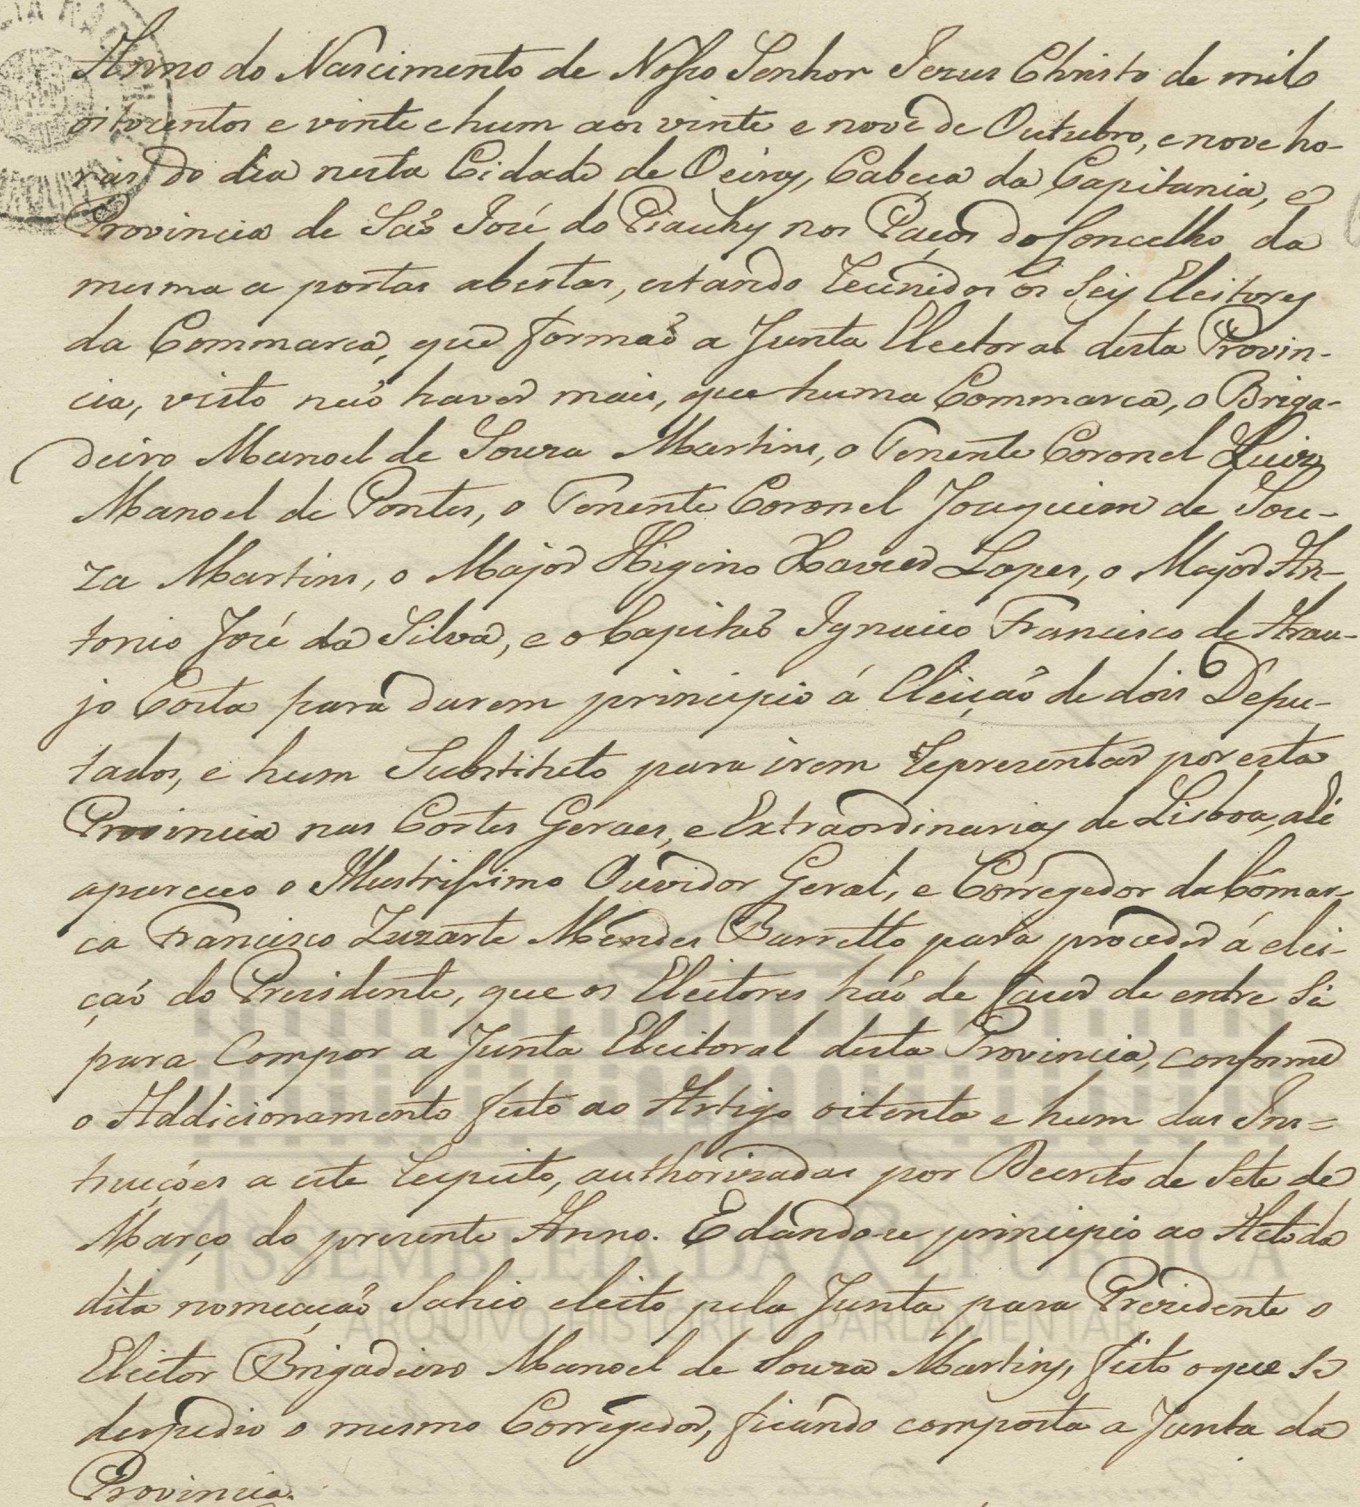 Anno do Nascimento de Nosso Senhor Jezus Christo de mil
oitocentos e vinte e hum aos vinte e nove de Outubro, e nove ho-
ras do dia nesta Cidade de Oeiras, Cabeça da Capitania, e
Provincia de São José do Piauhy nos Paços do Concelho da
mesma a portas abertas, estando reunidos os seis Eleitores
da Commarca, que formaõ a Junta Electoral desta Provin-
cia, visto naõ haver mais, que huma Commarca, o Briga-
deiro Manoel de Souza Martins, o Tenente Coronel Luis
Manoel de Pontes, o Tenente Coronel Joaquim de Sou-
za Martins, o Major Higino Xavier Lopes, o Major An-
tonio José da Silva, e o Capitaõ Ignacio Francisco de Arau-
jo Costa para darem principio á Eleiçaõ de dois Depu-
tados, e hum Substituto para irem representar por esta
Provincia nas Cortes Geraes, e Extraordinarias de Lisboa, ali
apareceo o Illustrissimo Ouvidor Geral, e Corregedor da Cômar-
ca Francisco Zuzarte Mendes Barretto para proceder á elei-
çaõ do Presidente, que os Eleitores haõ de fazer de entre si
para Compor a Junta Eleitoral desta Provincia, conforme
o Addicionamento feito ao Artigo oitenta e hum das Ins=
truções a este respeito, authorizadas por Decreto de sete de
Março do presente Anno. E dando-se principio ao Acto da
dita nomeaçaõ Sahio eleito pela Junta para Prezidente o
Eleitor Brigadeiro Manoel de Souza Martins, feito o que se
despedio o mesmo Corregedor, ficando composta a Junta da
Provincia.
ASSEMBLEIA DA REPÚBLICA
ARQUIVO HISTÓRICO PARLAMENTAR